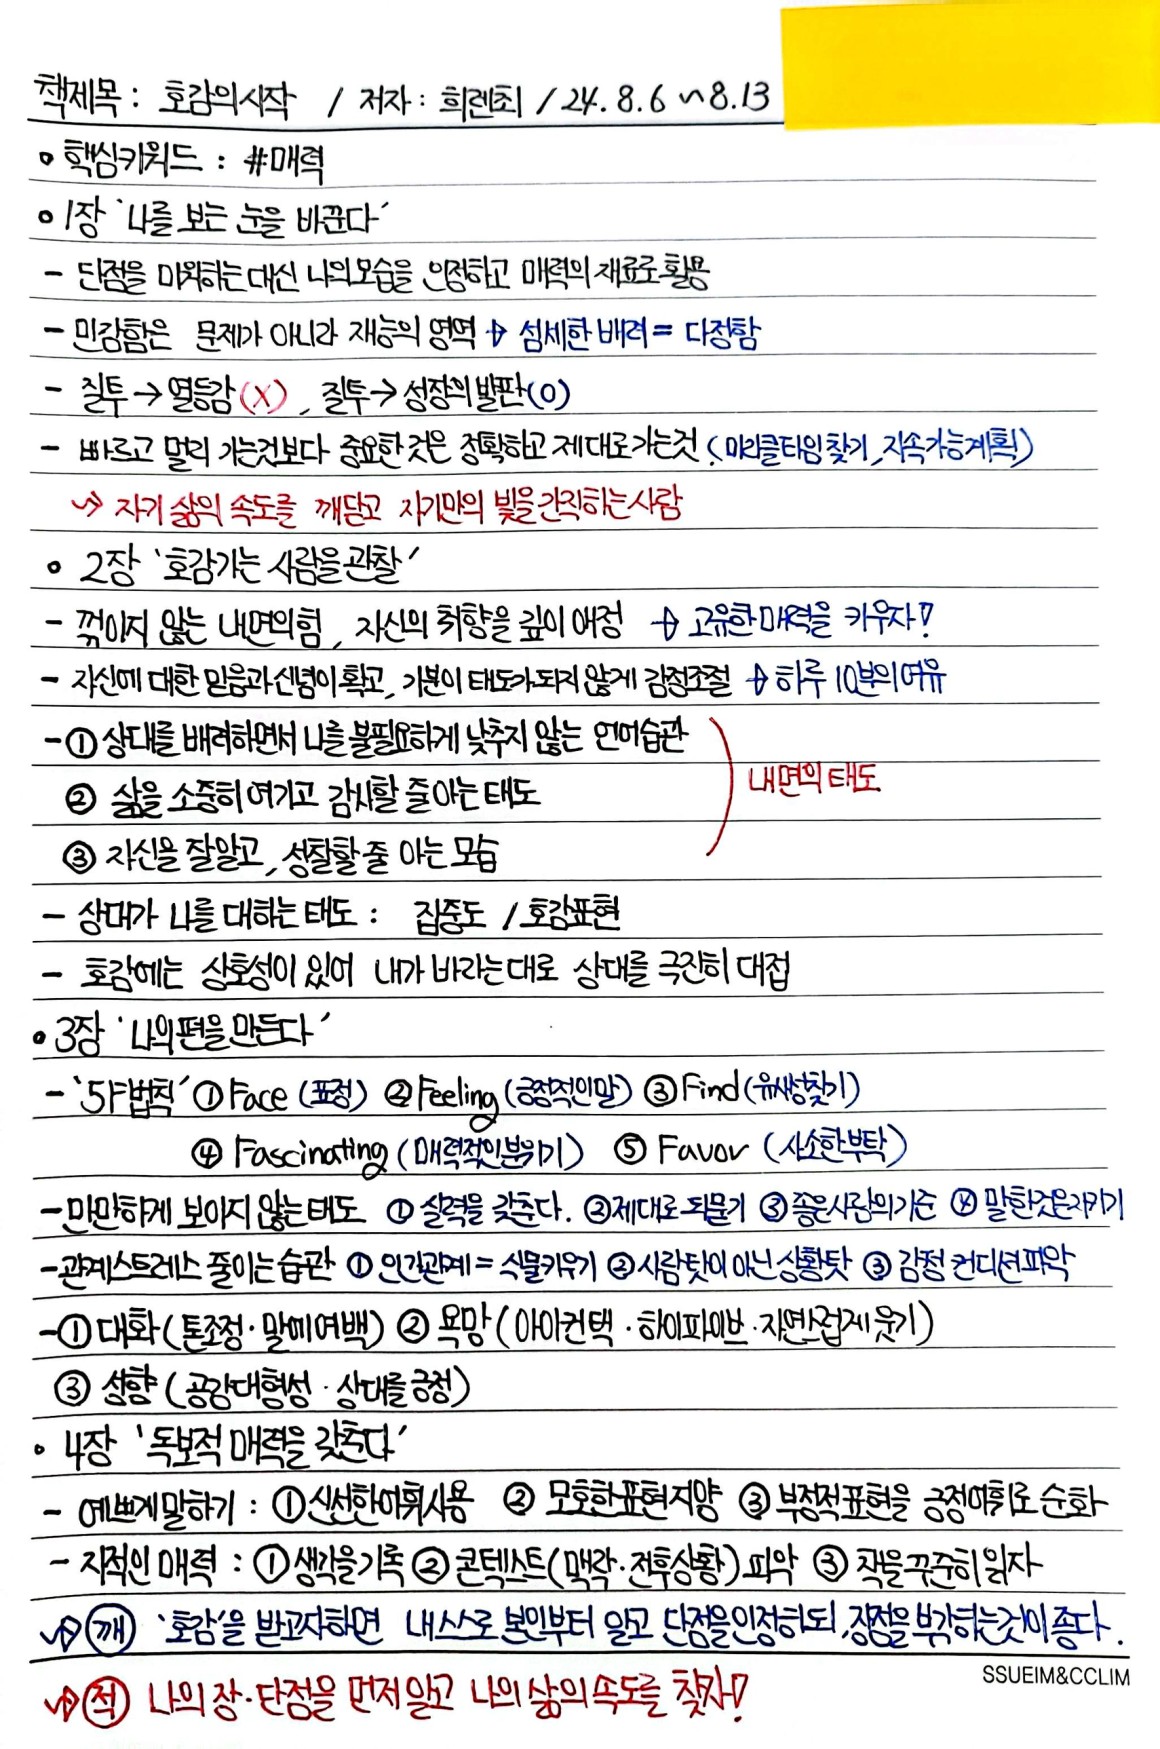 책제목 : 호감의시작 / 저자 : 희렌최 / 24. 8. 6 ~ 8.13
◦ 핵심키워드 : #매력
◦ 1장 '나를 보는 눈을 바꾼다'
- 단점을 미워하는대신 나의모습을 인정하고 매력의 재료로 활용
- 민감함은 문제가 아니라 재능의 영역 → 섬세한 배려 = 다정함
- 질투 → 열등감(X), 질투 → 성장의발판(O)
- 빠르고 멀리 가는것보다 중요한 것은 정확하고 제대로가는것 (미라클타임찾기, 지속가능계획)
↳ 자기 삶의 속도를 깨닫고 자기만의 빛을 간직하는사람
◦ 2장 '호감가는 사람을 관찰'
- 꺾이지 않는 내면의힘, 자신의 취향을 깊이 애정 → 고유한매력을 키우자!
- 자신에 대한 믿음과 신념이 확고, 기분이 태도가되지 않게 감정조절 → 하루 10분의여유
- ① 상대를 배려하면서 나를 불필요하게 낮추지 않는 언어습관
② 삶을 소중히 여기고 감사할 줄 아는 태도
내면의 태도
③ 자신을 잘알고, 성찰할 줄 아는 모습
- 상대가 나를 대하는 태도 : 집중도 / 호감표현
- 호감에는 상호성이 있어 내가 바라는대로 상대를 극진히 대접
• 3장 '나의편을 만든다'
- '5F법칙' ① Face (표정) ② Feeling (긍정적인말) ③ Find (유사성찾기)
④ Fascinating (매력적인분위기) ⑤ Favor (사소한부탁)
- 만만하게 보이지 않는태도 ① 실력을 갖춘다. ② 제대로 되묻기 ③ 좋은사람의기준 ④ 말한것은지키기
- 관계스트레스 줄이는 습관 ① 인간관계 = 식물키우기 ② 사람탓이 아닌 상황탓 ③ 감정 컨디션파악
- ① 대화 (톤조정 · 말에여백) ② 욕망 (아이컨택 · 하이파이브 · 자연스럽게 웃기)
③ 성향 (공감대형성 · 상대를 긍정)
• 4장 '독보적 매력을 갖춘다'
- 예쁘게 말하기 : ① 신선한어휘사용 ② 모호한표현지양 ③ 부정적표현을 긍정어휘로 순화
- 지적인 매력 : ① 생각을기록 ② 콘텍스트(맥락·전후상황)파악 ③ 책을꾸준히읽자
→ (깨) '호감'을 받고자하면 내 스스로 본인부터 알고 단점을인정하되, 장점을부각하는것이 좋다.
SSUEIM&CCLIM
→ (적) 나의 장·단점을 먼저 알고 나의 삶의 속도를 찾자!